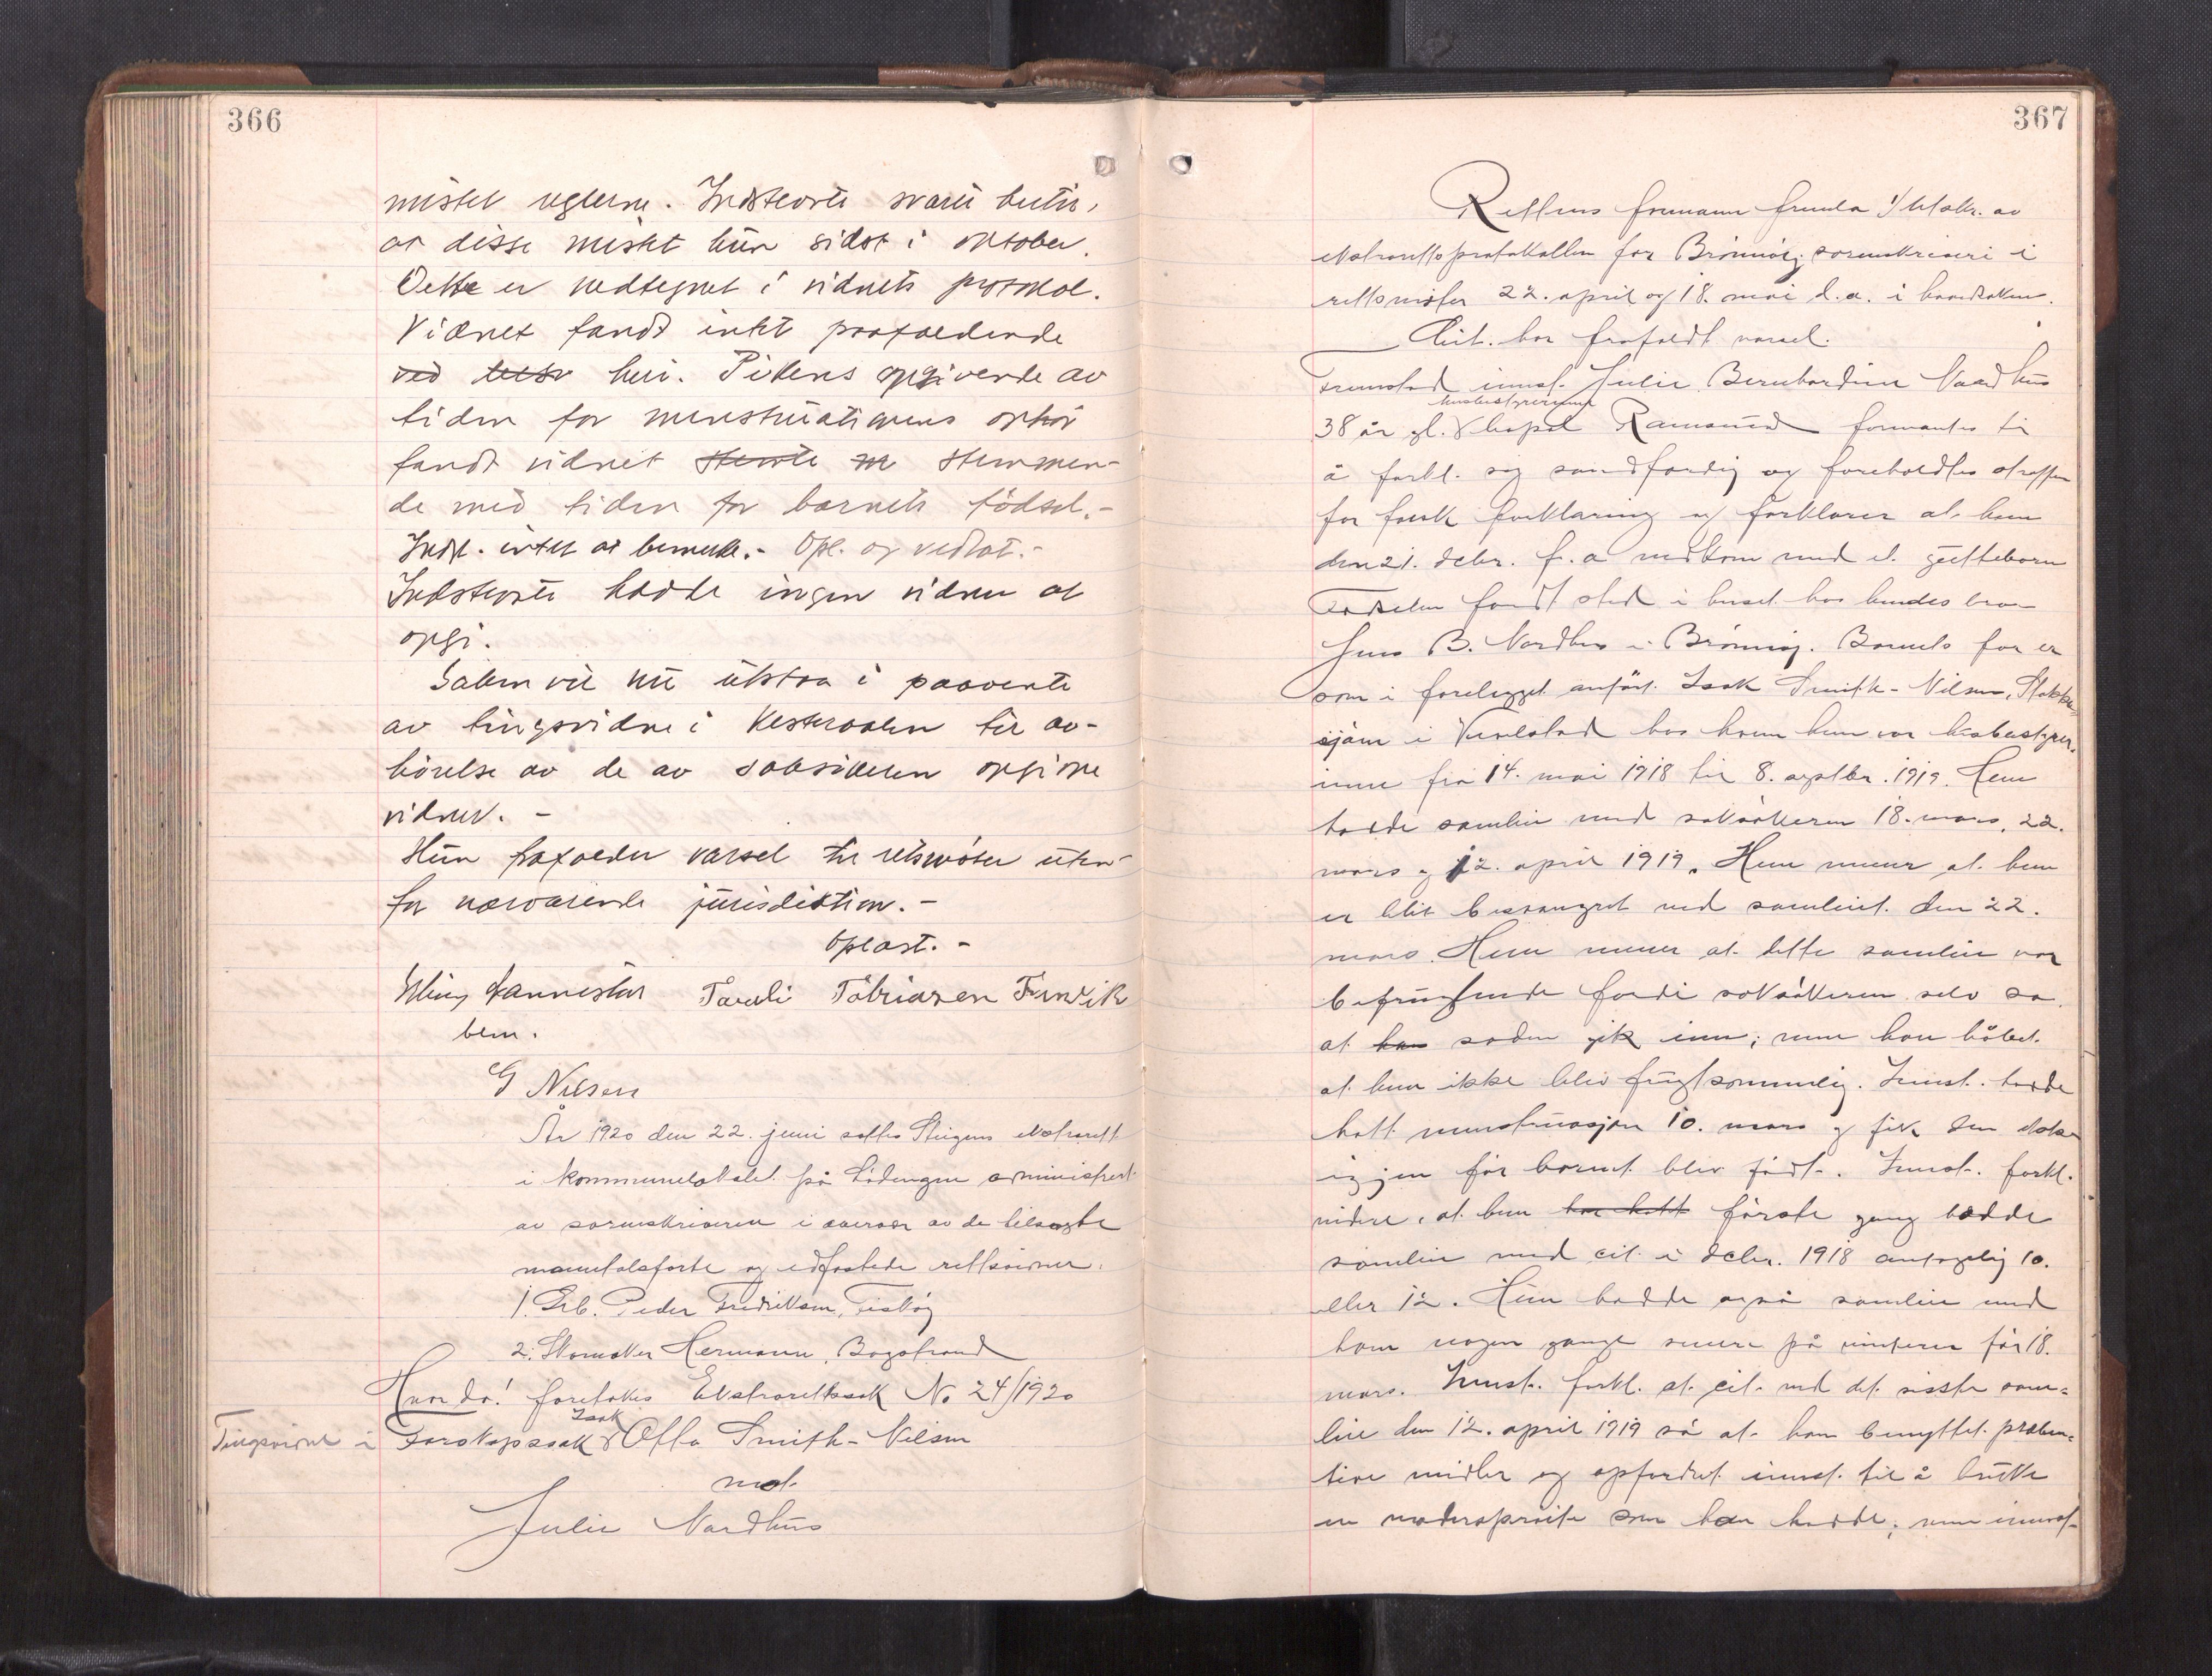 366
mistet reglerne. Indstevnte svarte hertil,
at disse mistet hun sidst i oktober.
Dette er nedtegnet i vidnets protokol.
Vidnet fandt intet paafaldende
ved heri. Pikens opgivende av
tiden for menstruationens ophør
fandt vidnet stemte m stemmen-
de med tiden for barnets fødsel.-
Indst. intet at bemerke.- Opl. og vedtat.-
Indstevnte hadde ingen vidner at
opgi.
Saken vil nu utstaa i paavente
av tingsvidne i Vesteraalen til av-
hørelse av de av saksøkeren opgivne
vidner.-
Hun frafalder varsel til retsmøter uten-
for nærværende jurisdiktion.-
Oplæst.-
Tøbiasen
bem.
G Nilsen
År 1920 den 22. juni sattes Steigens ekstrarett
i kommunelokalet på Lødingen administrert
av sorenskriveren i overvær av de tilsagte
mantalsførte og edfæstede rettsvidner:
1. Grb. Peder Fredriksen,
2. Skomaker Hermann,
Hvorda! foretokes Ekstrarettssak No 24/1920
Tingsvidne i Farskapssak Isak Otto Smith-Nilsen
mot
Julie Nordhus
367
Rettens formann fremla 1/ Utskr. av
ekstrarettsprotokollen for Brønnøy sorenskriveri i
rettsmøter 22. april og 18. mai d.a. i hovedsaken.
Cit. har frafaldt varsel.
Fremstod innst. Julie Bernhardine Nordhus
husbestyrerinne
38 år gl. Ramsund formantes til
å forkl. sig sandfærdig og foreholdtes straffen
for falsk forklaring og forklarer at hun
den 21. debr. f.a nedkom med et guttebarn
Fødselen fandt sted i huset hos hendes bror
Jens B. Nordhus i Brønnøy. Barnets far er
som i forelegget anført Isak Smith-Nilsen, Stokke-
sjøen i hos hvem hun var husbestyrer-
inne fra 14. mai 1918 til 8. septbr. 1919. Hun
hadde samleie med saksøkeren 18. mars, 22.
mars og 12. april 1919. Hun mener at hun
er blit besvangret ved samleiet den 22.
mars. Hun mener at dette samleie var
befrugtende fordi saksøkeren selv sa
at han sæden gik inn; men han håbet
at hun ikke blev frugtsommelig. Innst. hadde
hatt menstruasjon 10. mars og fik den ikke
igjen før barnet blev født. Innst. forkl.
videre, at hun har hatt første gang hadde
samleie med cit. i debr. 1918 antagelig 10.
eller 12. Hun hadde også samleie med
ham nogen gange senere på vinteren før 18.
mars. Innst. forkl. at cit. ved det siste sam-
leie den 12. april 1919 sa at han benyttet preben-
tive midler og opfordret innst. til å bruke
en modersprøite som han hadde; men innst.